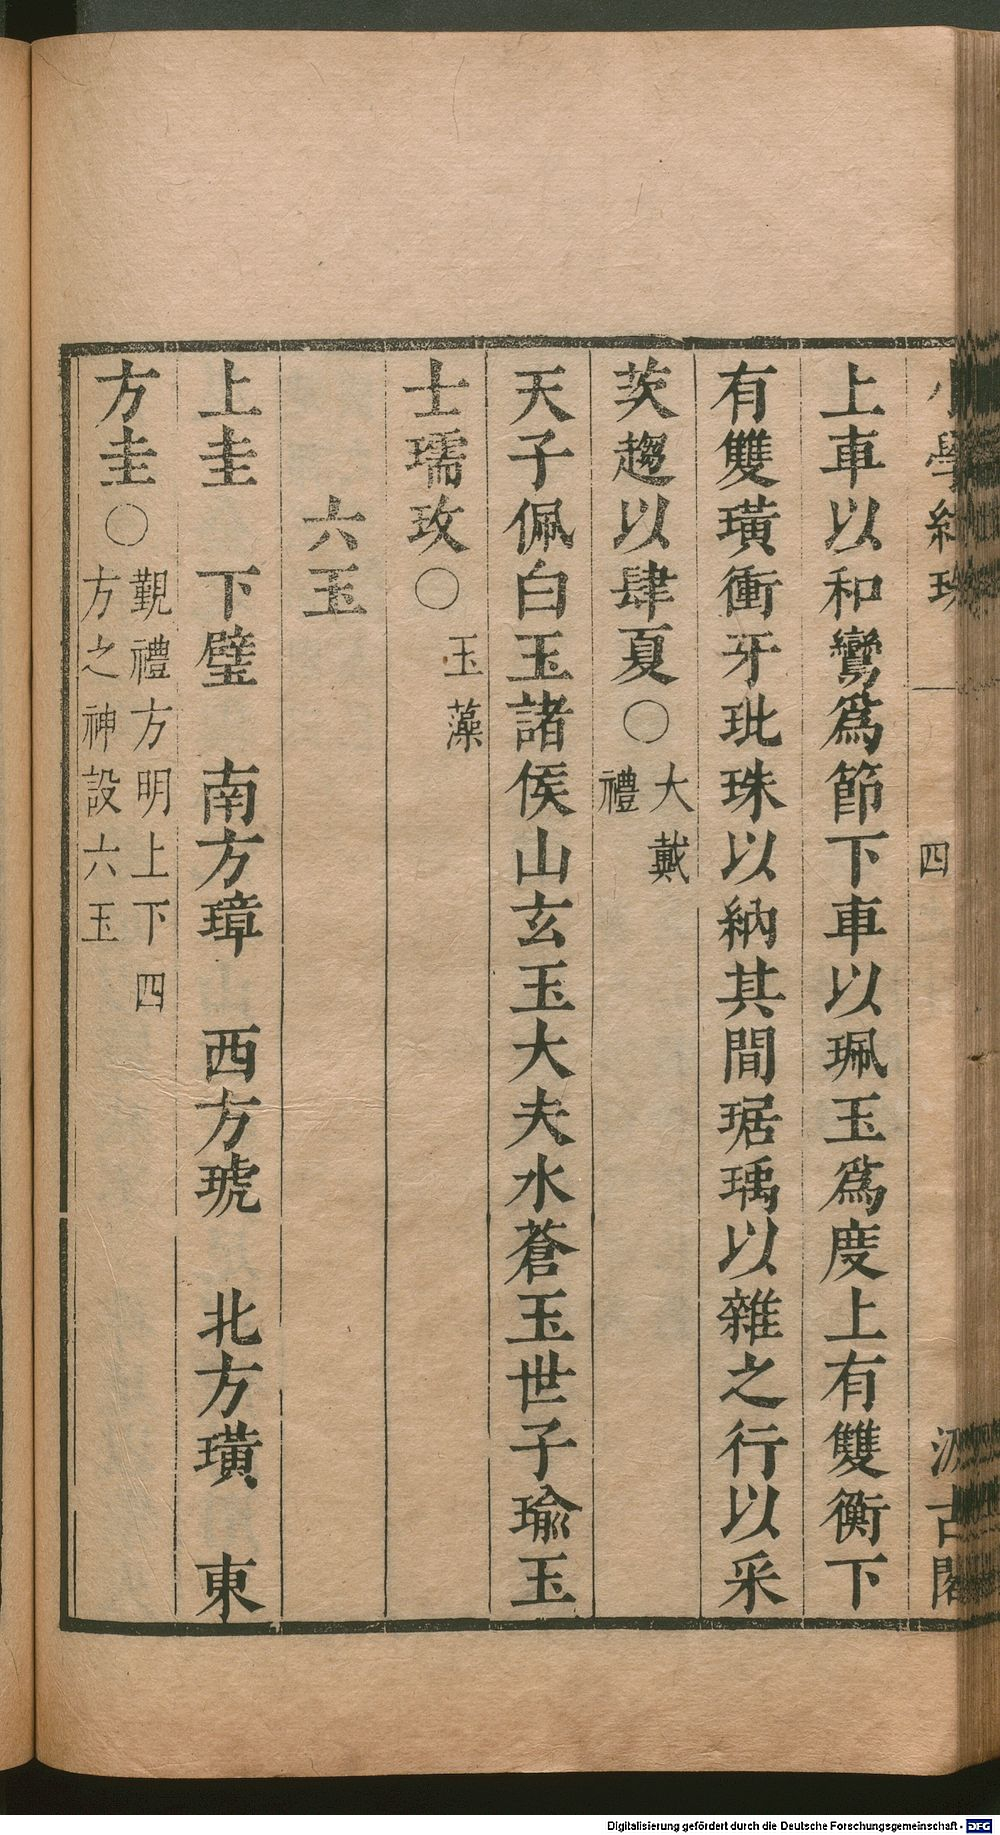 小學紺珠 四 汲古閣
上車以和鸞爲節下車以珮玉爲度上有雙衡下
有雙璜衝牙玭珠以納其間琚瑀以雜之行以采
茨趨以肆夏○大戴
禮
天子佩白玉諸侯山玄玉大夫水蒼玉世子瑜玉
士瓀玫○玉藻
六玉
上圭 下璧 南方璋 西方琥 北方璜 東
方圭○覲禮方明上下四
方之神設六玉
Digitalisierung gefördert durch die Deutsche Forschungsgemeinschaft - DFG